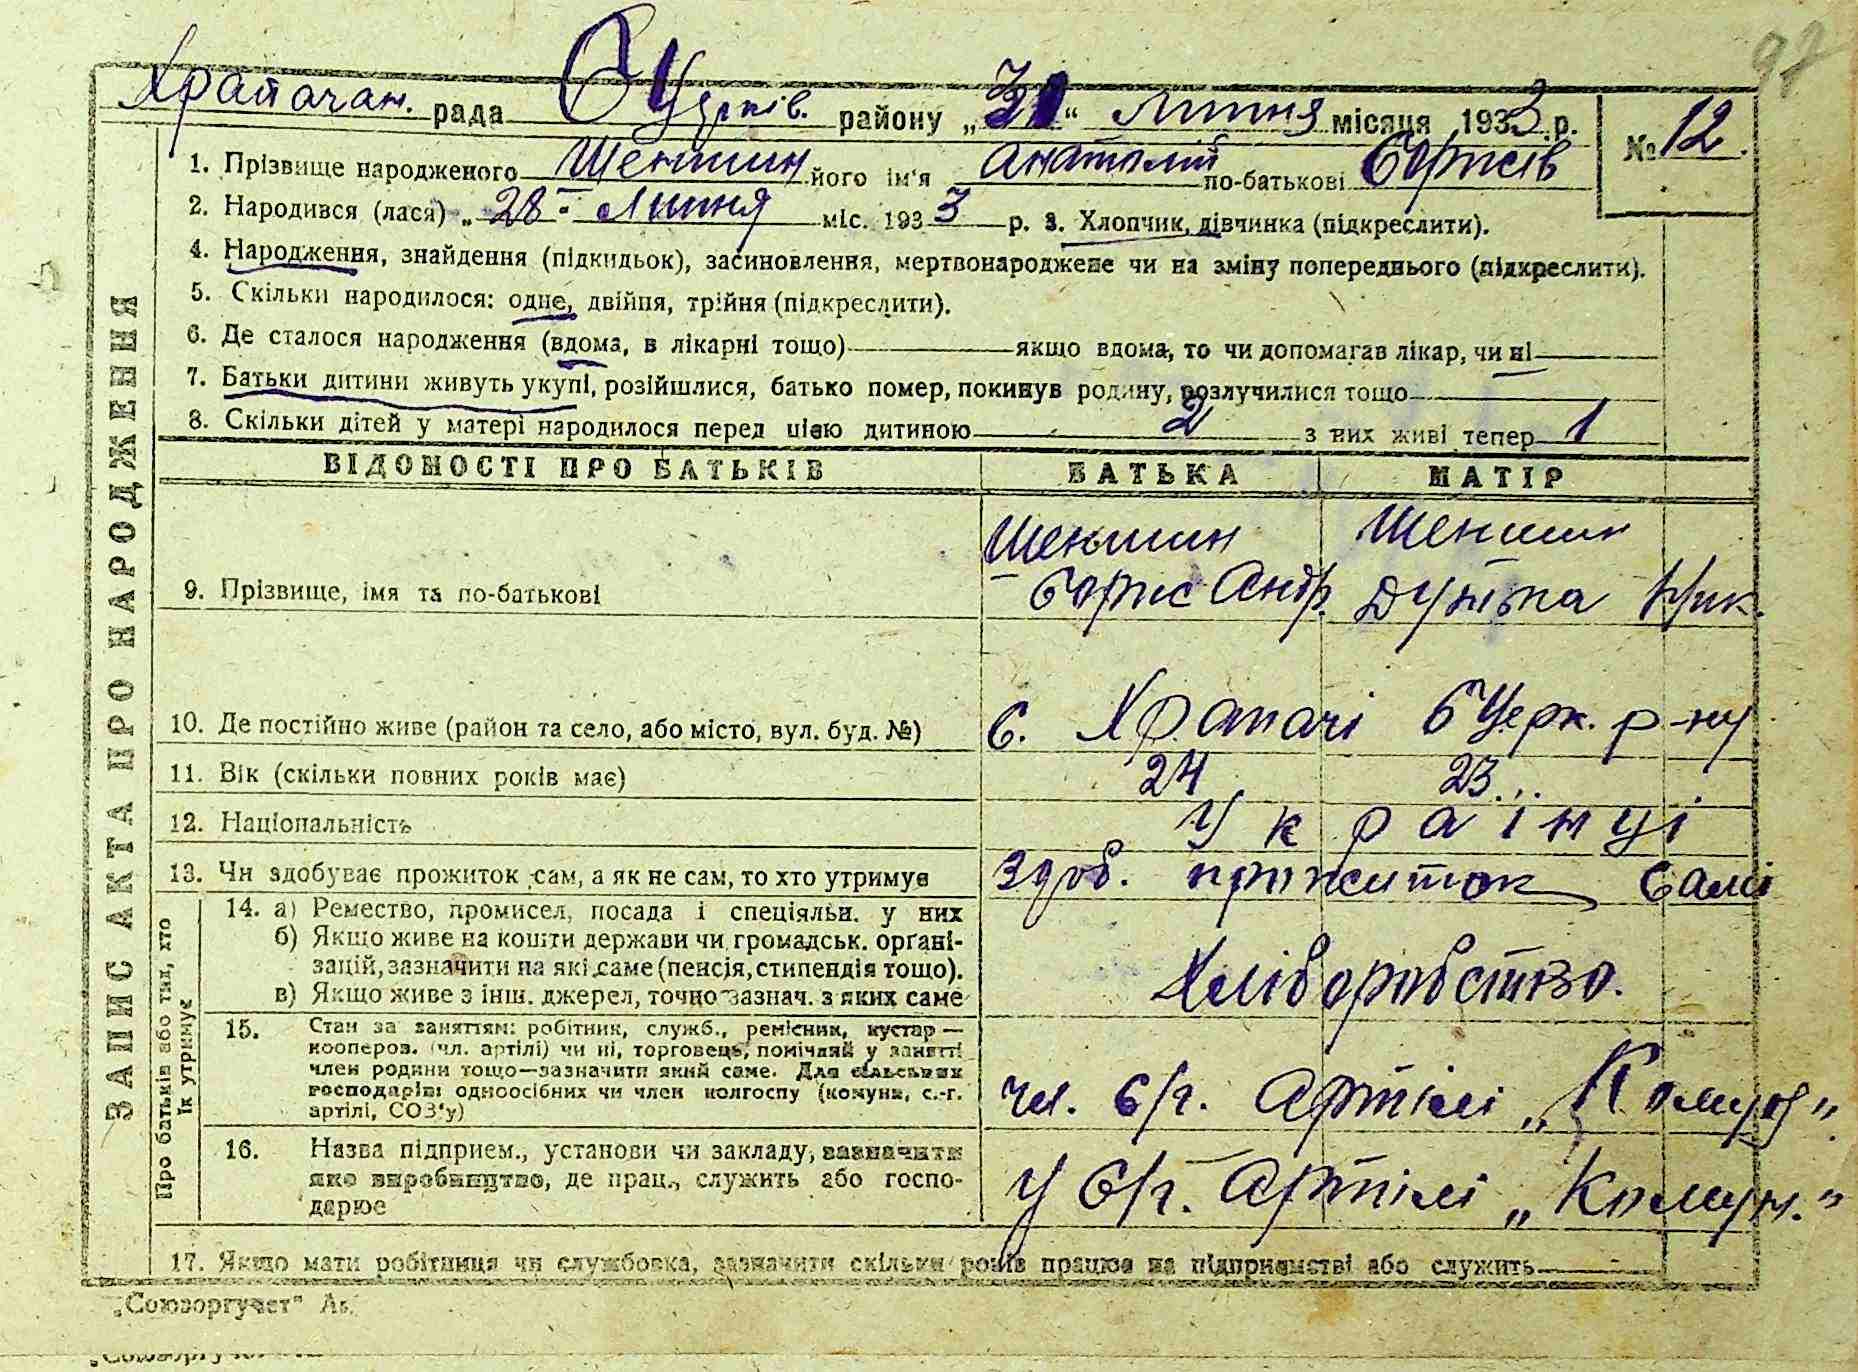 97
Храпачан. рада Б Церків. району „31“ Липня місяця 1933 р. № 12.
1. Прізвище народженого Шеншин його ім'я Анатолій по-батькові Борисів
2. Народився (лася) „28 Липня міс. 1933 р. 3. Хлопчик, дівчинка (підкреслити).
4. Народження, знайдення (підкидьок), засиновлення, мертвонароджене чи на зміну попереднього (підкреслити).
5. Скільки народилося: одне, двійня, трійня (підкреслити).
6. Де сталося народження (вдома, в лікарні тощо) якщо вдома, то чи допомагав лікар, чи ні
7. Батьки дитини живуть укупі, розійшлися, батько помер, покинув родину, розлучилися тощо
8. Скільки дітей у матері народилося перед цією дитиною 2 з них живі тепер 1
ЗАПИС АКТА ПРО НАРОДЖЕННЯ
ВІДОМОСТІ ПРО БАТЬКІВ БАТЬКА МАТІР
Шеншин Шеншин
9. Прізвище, імя та по-батькові Борис Андр. Дунька Ник.
10. Де постійно живе (район та село, або місто, вул. буд. №) с. Храпачі Б Церк. р-ну
11. Вік (скільки повних років має) 24 23
12. Національність Українці
13. Чи здобуває прожиток сам, а як не сам, то хто утримує здоб. прожиток самі
Про батьків або тих, хто їх утримує
14. а) Ремество, промисел, посада і спеціяльн. у них
б) Якщо живе на кошти держави чи громадськ. органі-
зацій, зазначити на які саме (пенсія, стипендія тощо).
в) Якщо живе з інш. джерел, точно зазнач. з яких саме
Хліборобство.
15. Стан за заняттям: робітник, служб., ремісник, кустар —
кооперов. (чл. артілі) чи ні, торговець, помічний у занятті
член родини тощо—зазначити який саме. Для сільських
господарів: одноосібних чи член колгоспу (комуни, с.-г.
артілі, СОЗ'у)
чл. с/г. Артілі „Комун“
16. Назва підприєм., установи чи закладу, зазначити
яке виробництво, де прац., служить або госпо-
дарює
у с/г. Артілі „Комун.“
17. Якщо мати робітниця чи службовка, зазначити скільки років працює на підприємстві або служить
„Союзоргучет“